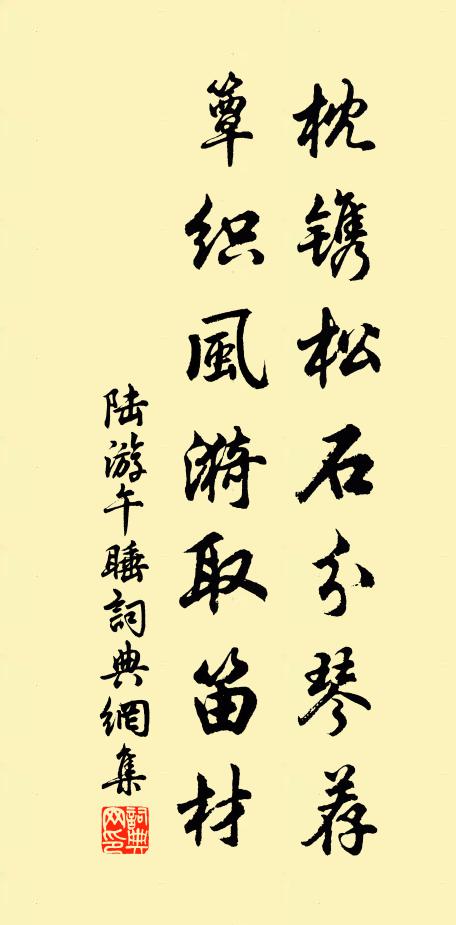 枕镌松石分琴荐
簟织風漪取笛材
陆游午睡詞典網集
詞典网印